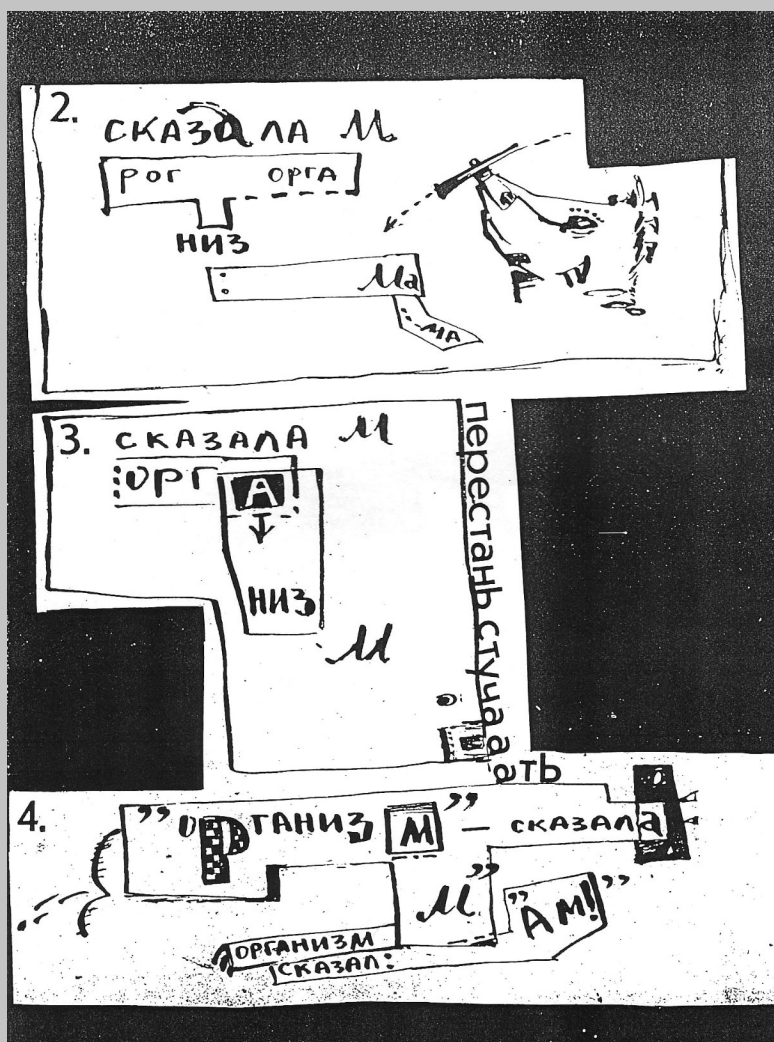 2.
СКАЗАЛА М
РОГ ОРГА
НИЗ
: Ма
МА
3. СКАЗАЛА М
:ОРГ А
НИЗ
М
перестань стуча а а ать
4. ,, ОРГАНИЗ М ” — СКАЗАЛа
М ”
„АМ!”
ОРГАНИЗМ
СКАЗАЛ: